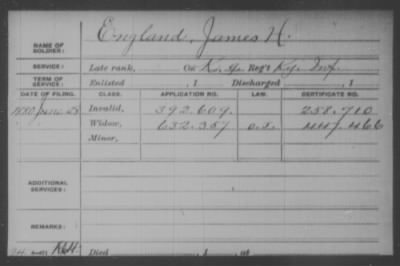 England, James H.
NAME OF SOLDIER:
SERVICE: Late rank, Co. K, Reg't Ky. Inf.
TERM OF SERVICE: Enlisted , 1 Discharged , 1
DATE OF FILING. CLASS. APPLICATION NO. LAW. CERTIFICATE NO.
1880 Invalid, 392.609. 258.710
Widow, 632.357 447.466
Minor,
ADDITIONAL SERVICES:
REMARKS:
Died , 1 , at